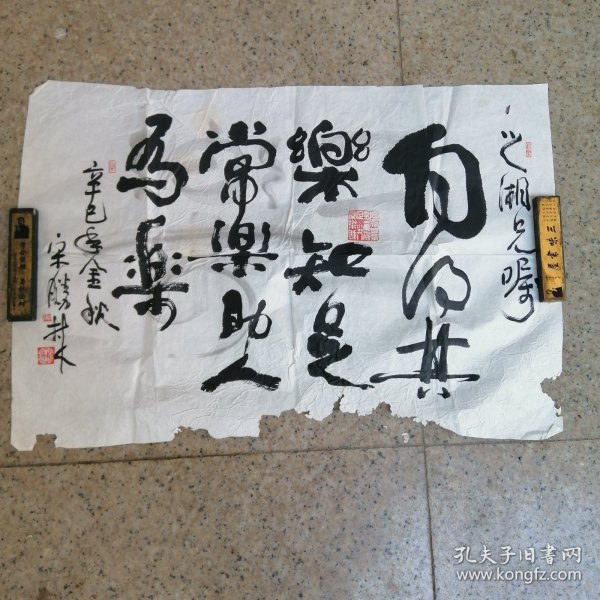 之湘兄嘱
自得其
樂知足
常樂助人
為樂
辛巳年金秋
宋勝林
孔夫子旧书网
www.kongfz.com